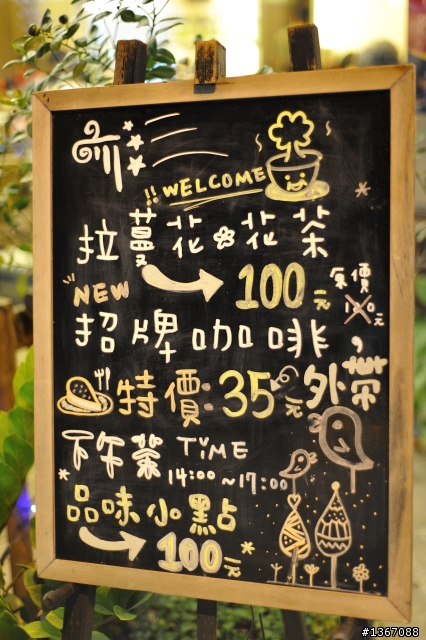 !! WELCOME
拉蔓花花茶
100元
原價
1元
NEW
招牌咖啡,
特價:35元
外帶
下午茶 TiME
14:00~17:00
品味小點
100元
#1367088